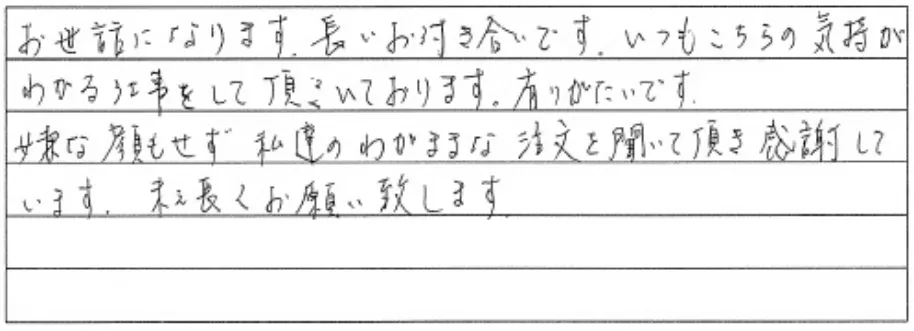 お世話になります。長いお付き合いです。いつもこちらの気持が
わかる仕事をして頂いております。有りがたいです。
嫌な顔もせず 私達のわがままな注文を聞いて頂き感謝して
います。末長くお願い致します。